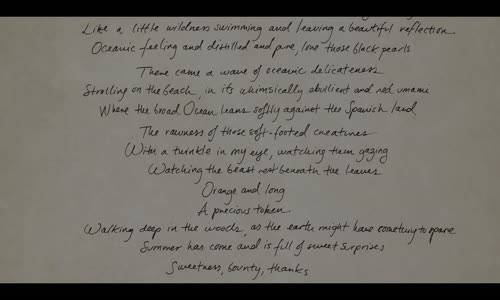 Like a little wildness swimming and leaving a beautiful reflection
Oceanic feeling and distilled and pure, love those black pearls
There came a wave of oceanic delicateness
Strolling on the beach, in its whimsically ebullient and red umami
Where the broad Ocean leans softly against the Spanish land
The rawness of those soft-footed creatures
With a twinkle in my eye, watching them gazing
Watching the beast rest beneath the leaves
Orange and long
A precious token
Walking deep in the woods, as the earth might have something to spare
Summer has come and is full of sweet surprises
Sweetness, bounty, thanks